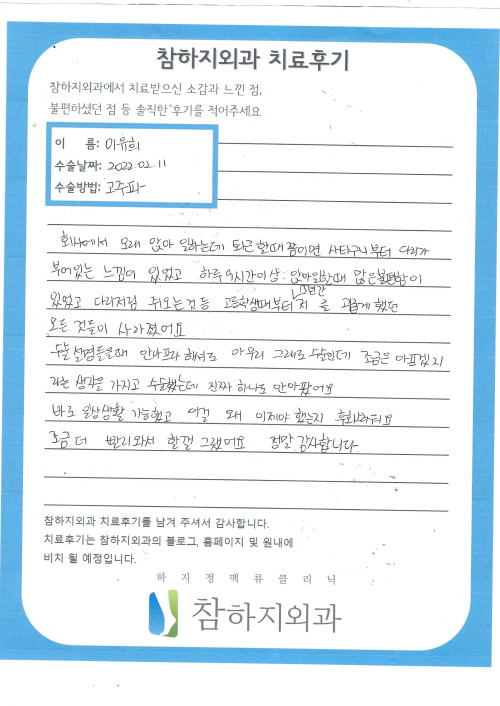 참하지외과 치료후기
참하지외과에서 치료받으신 소감과 느낀 점,
불편하셨던 점 등 솔직한 후기를 적어주세요
이 름: 이유희
수술날짜: 2022.02.11
수술방법: 고주파
회사에서 오래 앉아 일하는데 퇴근할때 쯤이면 사타구니부터 다리가
부어있는 느낌이 있었고 하루 9시간이상 앉아일할때 많은불편함이
있었고 다리저림 쥐오는것 등 고등학생때부터 15년간 저를 괴롭게 했던
모든 것들이 사라졌어요
수술 설명들을때 안아프다 하셔도 아무리 그래도 수술인데 조금은 아프겠지
라는 생각을 가지고 수술했는데 진짜 하나도 안아팠어요
바로 일상생활 가능했고 이걸 왜 이제야 했는지 후회돼요
조금 더 빨리와서 할껄 그랬어요 정말 감사합니다
참하지외과 치료후기를 남겨 주셔서 감사합니다.
치료후기는 참하지외과의 블로그, 홈페이지 및 원내에
비치 될 예정입니다.
하지정맥류클리닉
참하지외과